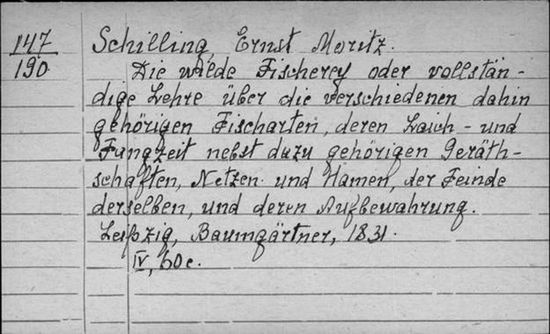 147
190
Schilling, Ernst Moritz.
Die wilde Fischerey oder vollstän-
dige Lehre über die verschiedenen dahin
gehörigen Fischarten, deren Laich- und
Fangzeit nebst dazu gehörigen Geräth-
schaften, Netzen und Hamen, der Feinde
derselben, und deren Aufbewahrung.
Leipzig, Baumgärtner, 1831.
IV, 60 c.